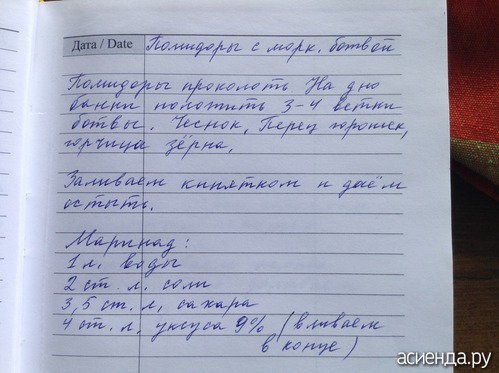 Дата / Date Помидоры с морк. ботвой
Помидоры проколоть На дно
банки положить 3-4 ветки
ботвы. Чеснок, Перец горошек,
горчица зёрна.
Заливаем кипятком и даём
остыть.
Маринад:
1 л. воды
2 ст. л. соли
3,5 ст. л, сахара
4 ст. л. уксуса 9% (вливаем
в конце)
асиенда.ру